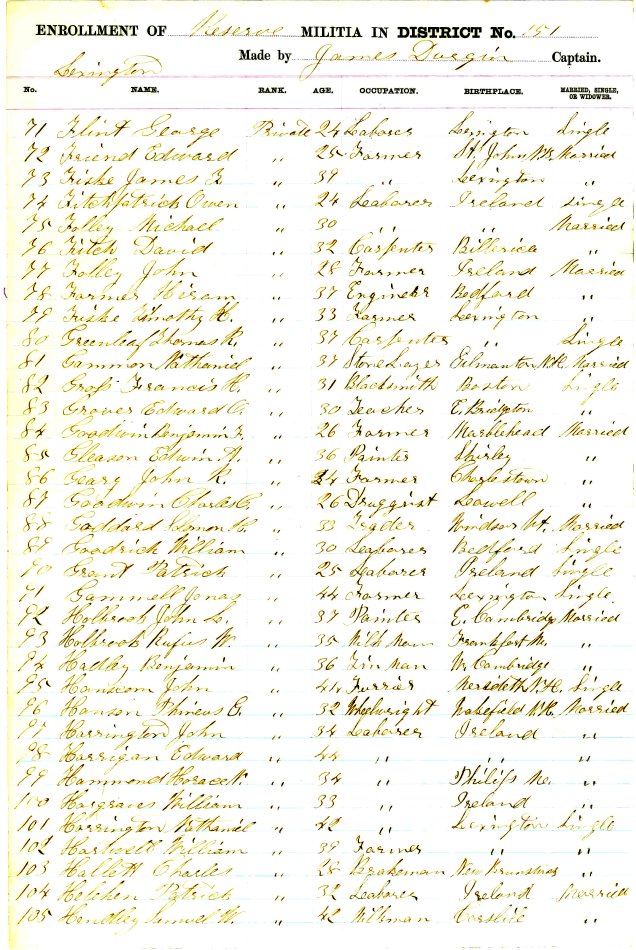 ENROLLMENT OF Reserve MILITIA IN DISTRICT No. 151
Made by James Durgin Captain.
Lexington
No. NAME. RANK. AGE. OCCUPATION. BIRTHPLACE. MARRIED, SINGLE, OR WIDOWER.
71 Flint George Private 24 Leaborer Lexington Single
72 Friend Edward " 25 Farmer St. John N.B. Married
73 Fiske James F. " 39 " Lexington "
74 Fitchpatrick Owen " 24 Leaborer Ireland Single
75 Folley Michael " 30 " " Married
76 Fitch David " 32 Carpenter Billerica "
77 Folley John " 28 Farmer Ireland Married
78 Farmer Hiram " 37 Engineer Bedford "
79 Fiske Timothy K. " 33 Farmer Lexington "
80 Greenleaf Thomas R. " 37 Carpenter " Single
81 Gammon Nathaniel " 37 Stone Layer Gilmanton N.H. Married
82 Gross Francis H. " 31 Blacksmith Boston Single
83 Grover Edward O. " 30 Teacher E. Bridgton "
84 Goodwin Benjamin F. " 26 Farmer Marblehead Married
85 Gleason Edwin A. " 36 Painter Shirley "
86 Geary John R. " 24 Farmer Charlestown "
87 Goodwin Charles C. " 26 Druggist Leowell "
88 Goddard H. " 33 Trader Windsor Vt. Married
89 Goodrich William " 30 Leaborer Bedford Single
90 Grant Patrick " 25 Leaborer Ireland Single
91 Gammell Jonas " 44 Farmer Lexington Single
92 Holbrook John L. " 37 Painter E. Cambridge Married
93 Holbrook Rufus W. " 35 Milk Man Frankfort Me. "
94 Hadley Benjamin " 36 Tin Man W. Cambridge "
95 Hanscom John " 41 Furrier Meredeth N.H. Single
96 Hanson Phineus G. " 32 Wheelwright Wakefield N.H. Married
97 Harrington John " 34 Leaborer Ireland "
98 Harrigan Edward " 44 " " "
99 Hammond Horace N. " 34 " Philips Me. "
100 Hargraves William " 33 " Ireland "
101 Harrington Nathaniel " 42 " Lexington Single
102 Hartwell William " 39 Farmer " "
103 Hallett Charles " 28 Brakeman New Brunswick "
104 Patrick " 32 Leaborer Ireland Married
105 Hendley Samuel W. " 42 Milkman Carslile "